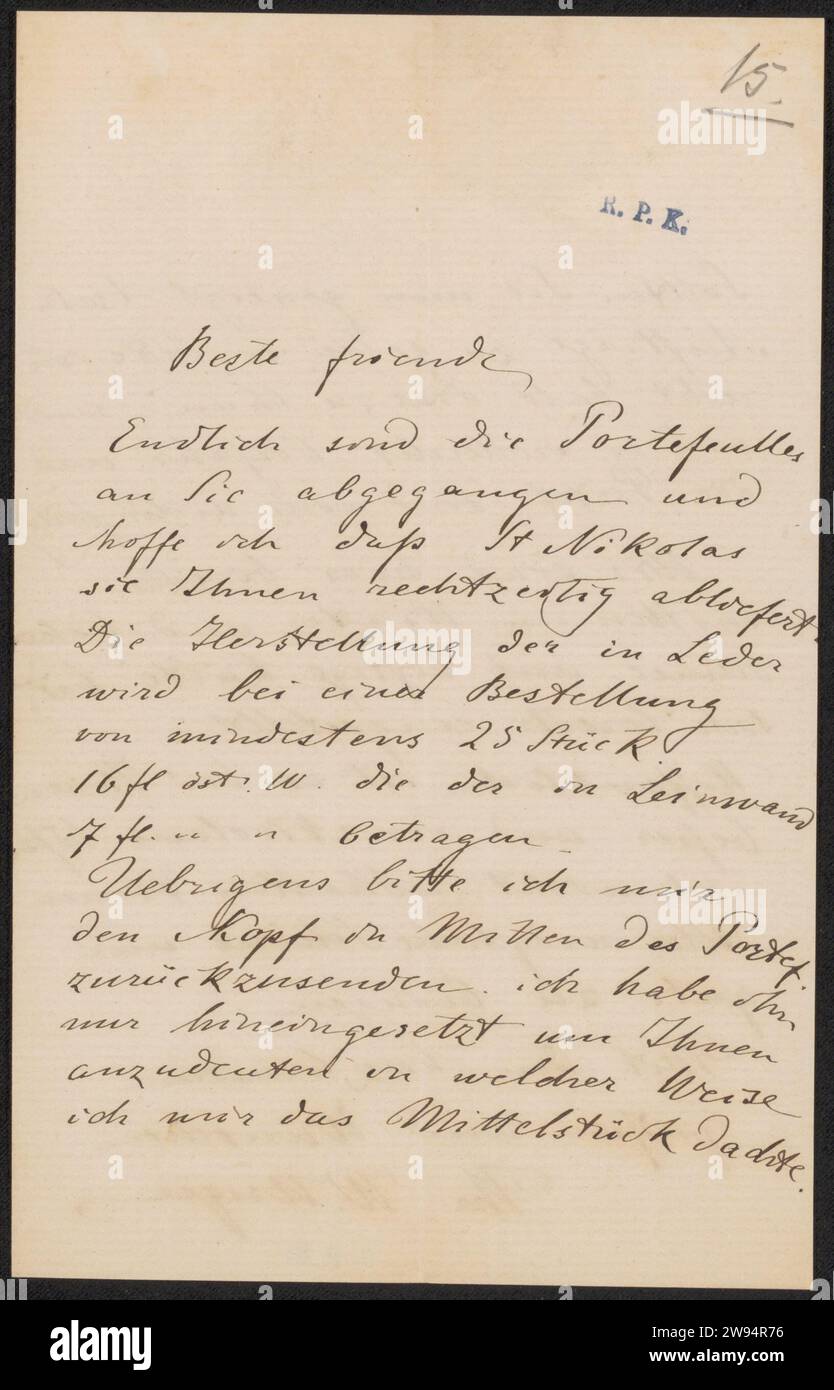 15.
R. P. K.
Beste friende
Endlich sind die Portefeulles
an Sie abgegangen und
hoffe ich daß St Nikolas
sie Ihnen rechtzeitig abliefert.
Die Herstellung der in Leder
wird bei einer Bestellung
von mindestens 25 Stück
16 fl öst. W. die der in Leinwand
7 fl. " " betragen
Uebrigens bitte ich mir
den Kopf in Mitten des Portef.
zurückzusenden. ich habe ihn
nur hineingesetzt um Ihnen
anzudeuten in welcher Weise
ich mir das Mittelstück dachte.
alamy
Image ID: 2W94R76
www.alamy.com